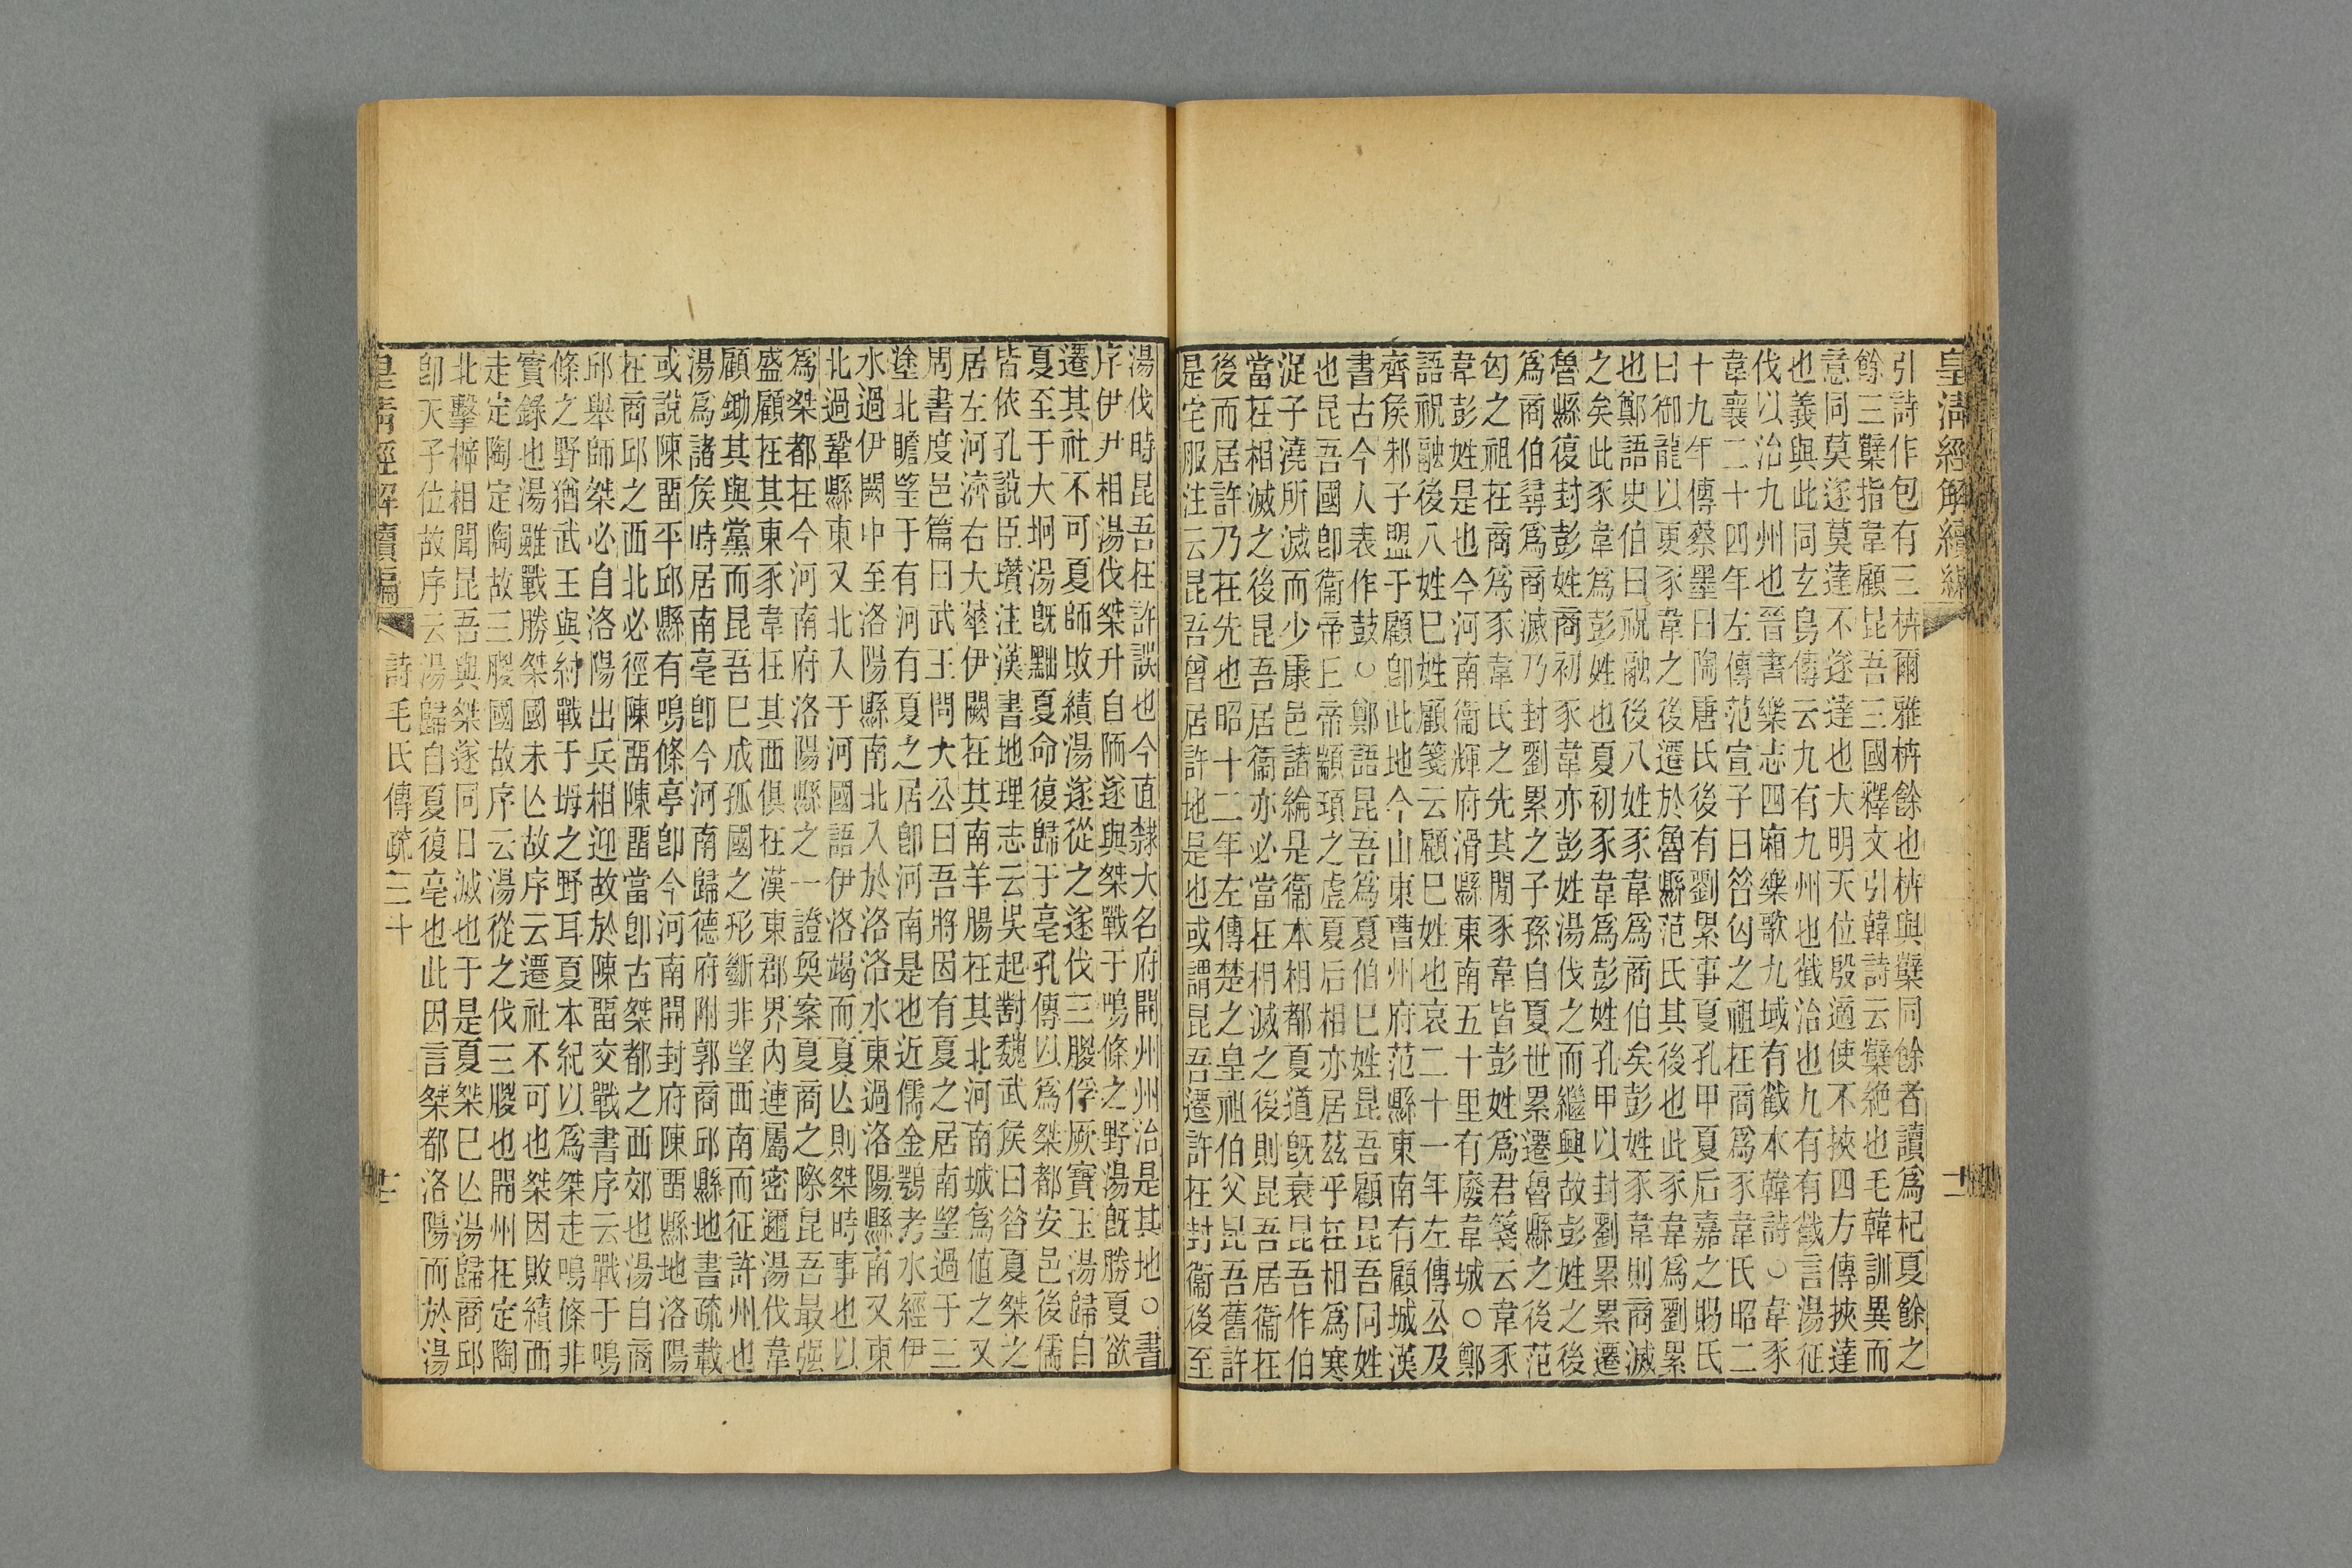 皇清經解續編
引詩作包有三枿爾雅枿餘也枿與櫱同餘者讀爲杞夏餘之
餘三櫱指韋顧昆吾三國釋文引韓詩云櫱絶也毛韓訓異而
意同莫遂莫達不遂達也大明天位殷適使不挾四方傳挾達
也義與此同玄鳥傳云九有九州也截治也九有有截言湯征
伐以治九州也晉書樂志四廂樂歌九域有截本韓詩○韋豕
韋襄二十四年左傳范宣子曰昔匄之祖在商爲豕韋氏昭二
十九年傳蔡墨曰陶唐氏後有劉累事夏孔甲夏后嘉之賜氏
曰御龍以更豕韋之後遷於魯縣范氏其後也此豕韋爲劉累
也鄭語史伯曰祝融後八姓豕韋爲商伯矣彭姓豕韋則商滅
之矣此豕韋爲彭姓也夏初豕韋爲彭姓孔甲以封劉累累遷
魯縣復封彭姓商初豕韋亦彭姓湯伐之而繼興故彭姓之後
爲商伯尋爲商滅乃封劉累之子孫自夏世累遷魯縣之後范
匄之祖在商爲豕韋氏之先其閒豕韋皆彭姓爲君箋云韋豕
韋彭姓是也今河南衞輝府滑縣東南五十里有廢韋城○鄭
語祝融後八姓巳姓顧箋云顧巳姓也哀二十一年左傳公及
齊矦邾子盟于顧卽此地今山東曹州府范縣東南有顧城漢
書古今人表作鼓○鄭語昆吾爲夏伯巳姓昆吾顧昆吾同姓
也昆吾國卽衞帝丘帝顓頊之虛夏后相亦居茲乎在相爲寒
浞子澆所滅而少康邑諸綸是衞本相都夏道旣衰昆吾作伯
當在相滅之後昆吾居衞亦必當在相滅之後則昆吾居衞在
後而居許乃在先也昭十二年左傳楚之皇祖伯父昆吾舊許
是宅服注云昆吾曾居許地是也或謂昆吾遷許在封衞後至
湯伐時昆吾在許誤也今直隸大名府開州州治是其地○書
序伊尹相湯伐桀升自陑遂與桀戰于鳴條之野湯旣勝夏欲
遷其社不可夏師敗績湯遂從之遂伐三朡俘厥寶玉湯歸自
夏至于大坰湯旣黜夏命復歸于亳孔傳以爲桀都安邑後儒
皆依孔說臣瓚注漢書地理志云吳起對魏武矦曰昔夏桀之
居左河濟右大華伊闕在其南羊腸在其北河南城爲値之又
周書度邑篇曰武王問大公曰吾將因有夏之居南望過于三
塗北瞻望于有河有夏之居卽河南是也近儒金鶚考水經伊
水過伊闕中至洛陽縣南北入於洛洛水東過洛陽縣南又東
北過鞏縣東又北入于河國語伊洛竭而夏亾則桀時事也以
爲桀都在今河南府洛陽縣之一證奐案夏商之際昆吾最强
盛顧在其東豕韋在其西俱在漢東郡界內連屬密邇湯伐韋
顧鋤其與黨而昆吾巳成孤國之形斷非望西南而征許州也
湯爲諸矦時居南亳卽今河南歸德府附郭商邱縣地書疏載
或說陳畱平邱縣有鳴條亭卽今河南開封府陳畱縣地洛陽
在商邱之西北必徑陳畱陳畱當卽古桀都之西郊也湯自商
邱舉師桀必自洛陽出兵相迎故於陳畱交戰書序云戰于鳴
條之野猶武王與紂戰于坶之野耳夏本紀以爲桀走鳴條非
實錄也湯雖戰勝桀國未亾故序云遷社不可也桀因敗績而
走定陶定陶故三朡國故序云湯從之伐三朡也開州在定陶
北擊櫛相聞昆吾與桀遂同日滅也于是夏桀巳亾湯歸商邱
卽天子位故序云湯歸自夏復亳也此因言桀都洛陽而於湯
皇清經解續編 詩毛氏傳疏三十